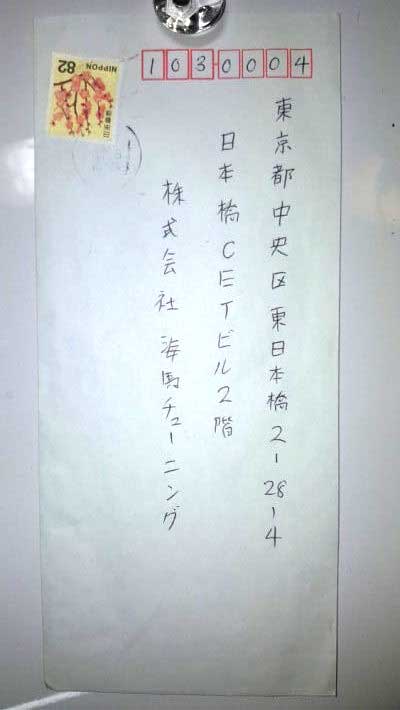 1030004
東京都中央区東日本橋2-28-4
日本橋CETビル2階
株式会社 海馬チューニング
82
NIPPON
日本郵便